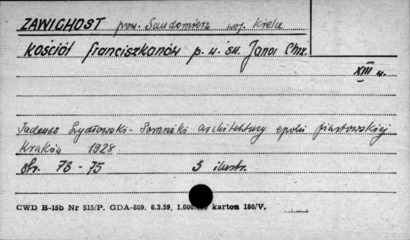 ZAWICHOST pow. Sandomierz woj. Kielce
Kościół franciszkanów p. w. św. Jana Chrz.
XIII w.
Tadeusz Szydłowski - Pomniki architektury epoki piastowskiej
Kraków 1928
Str. 73 - 75 3 ilustr.
CWD B-15b Nr 515/P. GDA-809. 6.2.59. karton 180/V.